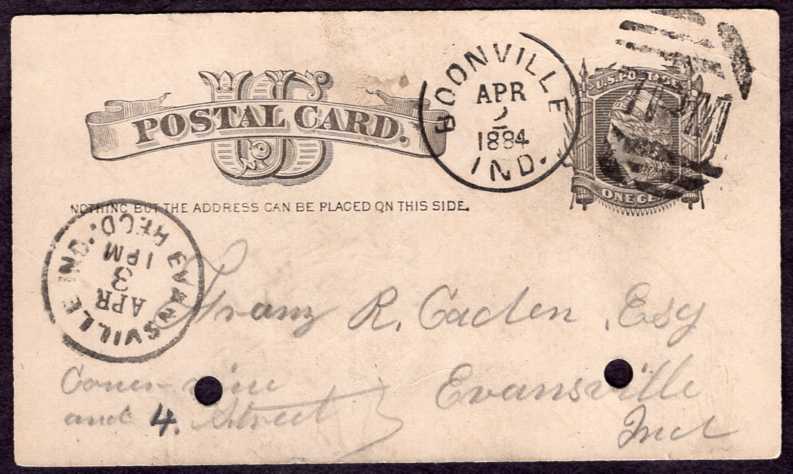 US
POSTAL CARD.
NOTHING BUT THE ADDRESS CAN BE PLACED ON THIS SIDE.
BOONVILLE
APR
2
1884
IND.
1 PM
U.S. POSTAGE
ONE CENT
EVANSVILLE IND. REC'D.
APR
3
1 PM
Franz R. Caden, Esq
Evansville
Ind
Corner Vine
and 4. Street